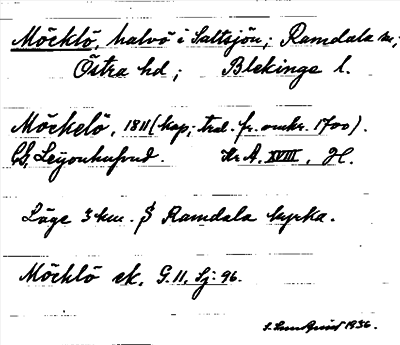 Möcklö, halvö i Saltsjön; Ramdala sn,
Östra hd; Blekinge l.
Möckelö, 1811 (kop; trol. fr. omkr. 1700).
Leijonhufvud. Kr A. XVIII. H.
Läge 3 km. S Ramdala kyrka.
Möcklö ek. G.11, Sj: 96.
1936.